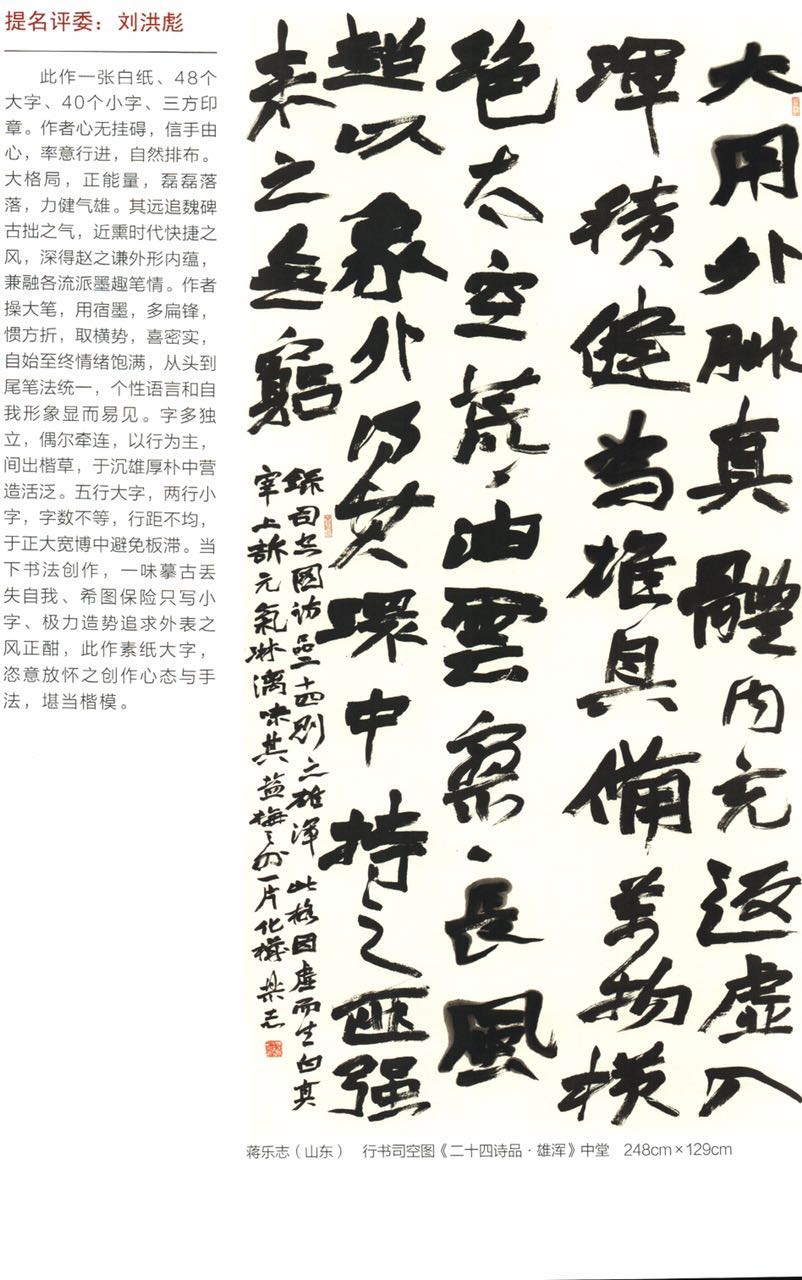 提名评委：刘洪彪
此作一张白纸、48个
大字、40个小字、三方印
章。作者心无挂碍，信手由
心，率意行进，自然排布。
大格局，正能量，磊磊落
落，力健气雄。其远追魏碑
古拙之气，近熏时代快捷之
风，深得赵之谦外形内蕴，
兼融各流派墨趣笔情。作者
操大笔，用宿墨，多扁锋，
惯方折，取横势，喜密实，
自始至终情绪饱满，从头到
尾笔法统一，个性语言和自
我形象显而易见。字多独
立，偶尔牵连，以行为主，
间出楷草，于沉雄厚朴中营
造活泛。五行大字，两行小
字，字数不等，行距不均，
于正大宽博中避免板滞。当
下书法创作，一味摹古丢
失自我、希图保险只写小
字、极力造势追求外表之
风正酣，此作素纸大字，
恣意放怀之创作心态与手
法，堪当楷模。
大用外腓真體内充返虚入
渾積健為雄具備萬物横
絶太空荒々油雲寥々長風
超以象外得其環中持之匪强
来之無窮
録司空圖诗品二十四则之雄渾 此格因虚而生 白真
宰上訴元氣淋漓味其益梅之外一片化機 樂志
蒋乐志（山东） 行书司空图《二十四诗品·雄浑》中堂 248cm×129cm